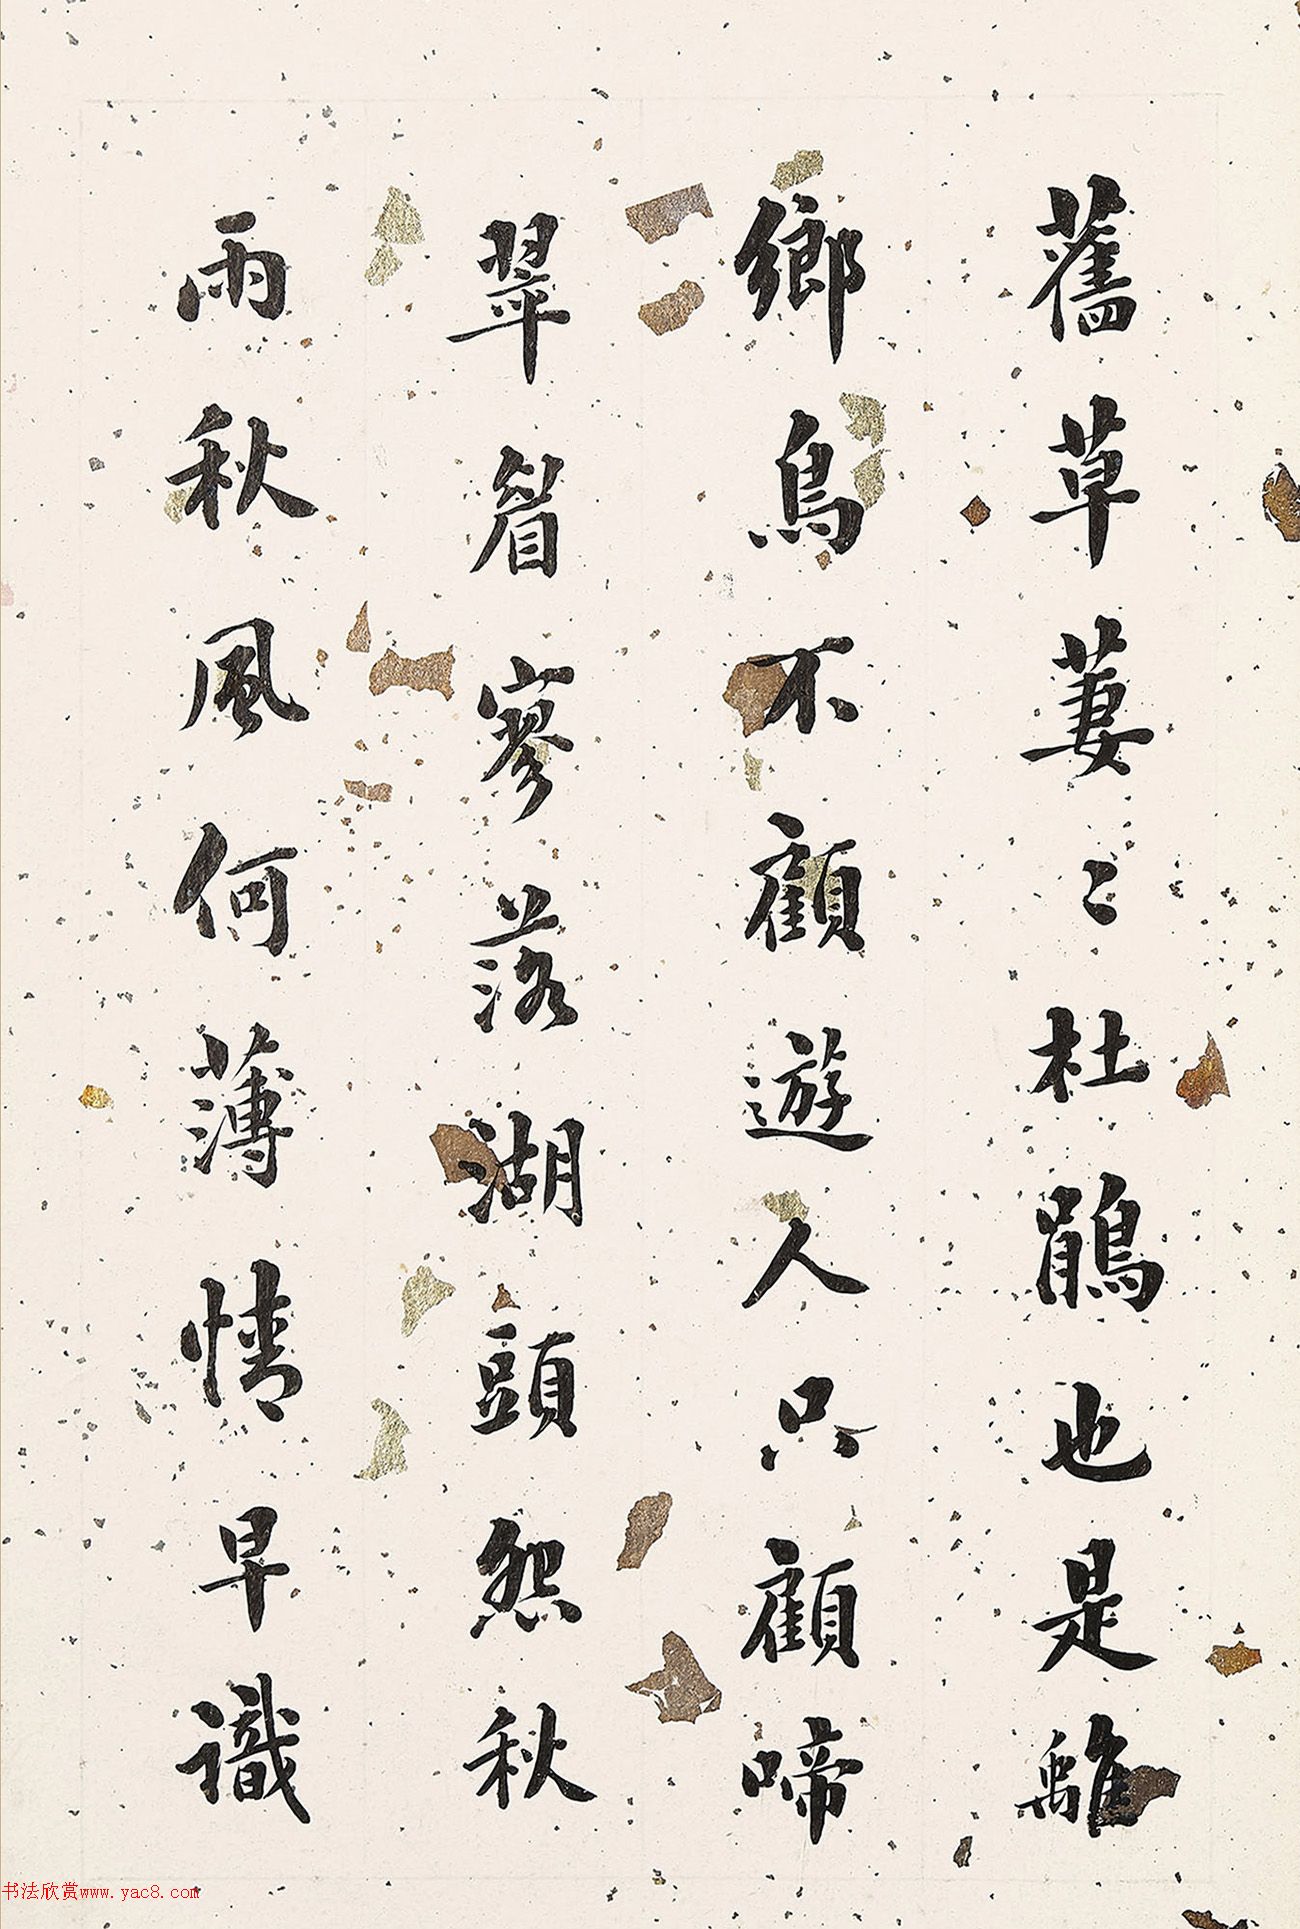 舊草萋〻杜鵑也是離
鄉鳥不顧遊人只顧啼
翠眉寥落湖頭怨秋
雨秋風何薄情早識
书法欣赏www.yac8.com